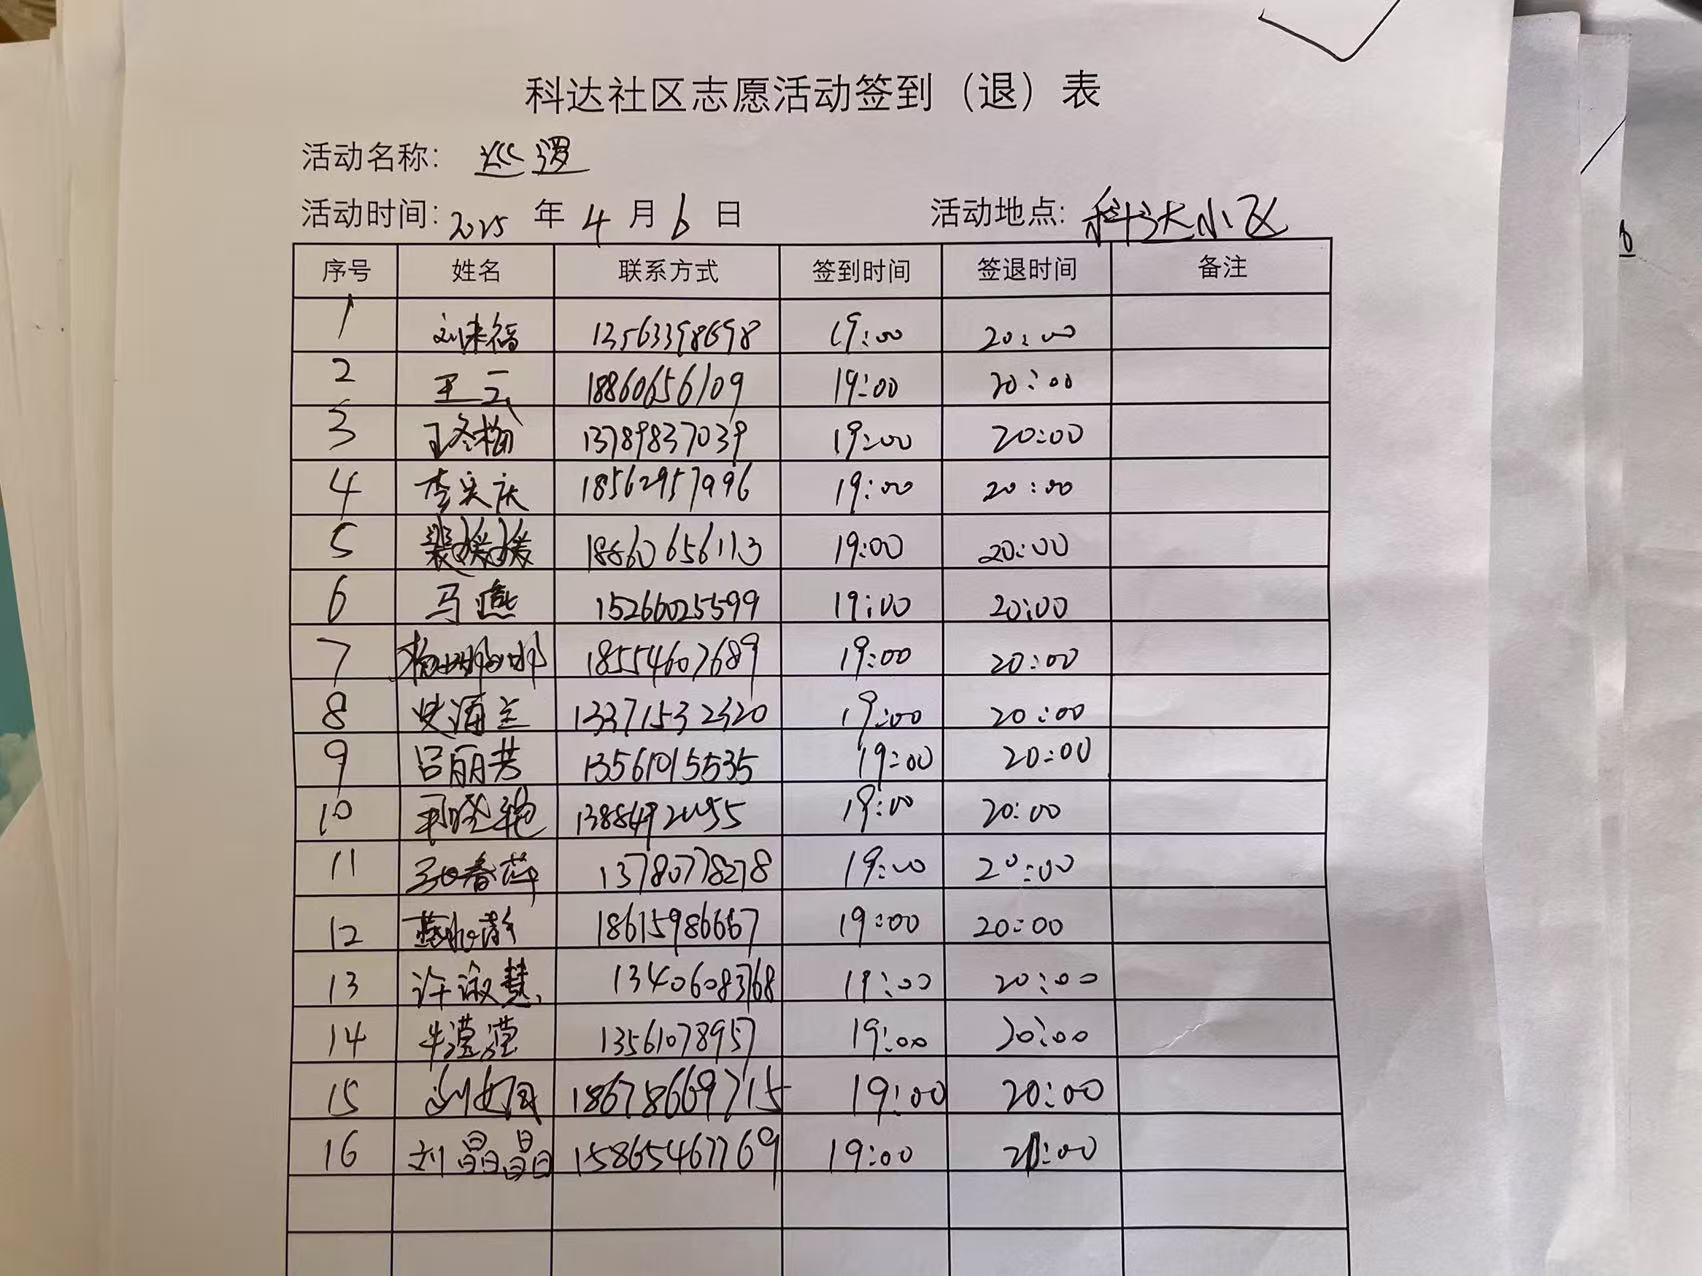 科达社区志愿活动签到（退）表
活动名称： 巡逻
活动时间：2025 年 4 月 6 日 活动地点：科达小区
序号 姓名 联系方式 签到时间 签退时间 备注
1 刘来福 13563398698 19:00 20:00
2 王云 18860656109 19:00 20:00
3 王冬梅 13789837039 19:00 20:00
4 李安庆 18562957996 19:00 20:00
5 裴媛媛 18860656113 19:00 20:00
6 马燕 15266025599 19:00 20:00
7 杨娜娜 18554607689 19:00 20:00
8 史海兰 13371532320 19:00 20:00
9 吕丽芳 13561015535 19:00 20:00
10 19:00 20:00
11 春萍 13780778278 19:00 20:00
12 静 18615986667 19:00 20:00
13 许淑慧 13406083768 19:00 20:00
14 牛滢滢 13561078957 19:00 20:00
15 刘 18678669715 19:00 20:00
16 刘晶晶 15865467769 19:00